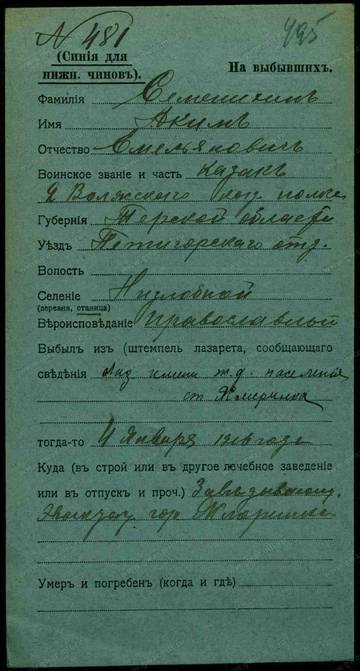 № 481
495
(Синія для
нижн. чиновъ).
На выбывшихъ.
Фамилія Семенихинъ
Имя Акимъ
Отчество Емельяновичъ
Воинское званіе и часть казакъ
2 Волжскаго каз. полка
Губернія Терской области
Уѣздъ Пятигорскаго отд.
Волость
Селеніе Незлобной
(деревня, станица)
Вѣроисповѣданіе православный
Выбылъ изъ (штемпель лазарета, сообщающаго
свѣдѣнія Лаз имени ж.д.
ст Жмеринка
тогда-то 4 Января 1916 года
Куда (въ строй или въ другое лечебное заведеніе
или въ отпускъ и проч.) Завѣдывающ.
гор Жмеринка
Умеръ и погребенъ (когда и гдѣ)